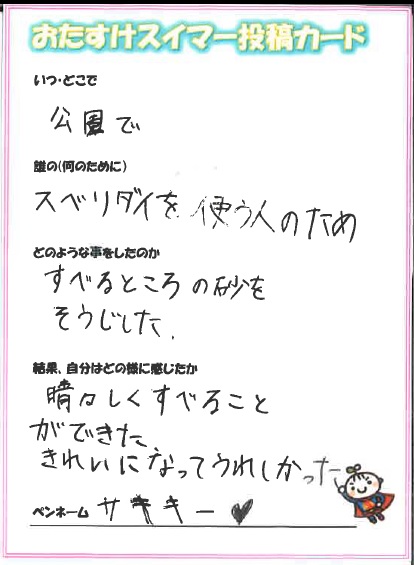 おたすけスイマー投稿カード
いつ・どこで
公園で
誰の(何のために)
スベリダイを使う人のため
どのような事をしたのか
すべるところの砂を
そうじした.
結果、自分はどの様に感じたか
晴々しくすべること
ができた、
きれいになってうれしかった
ペンネーム サキキー♥